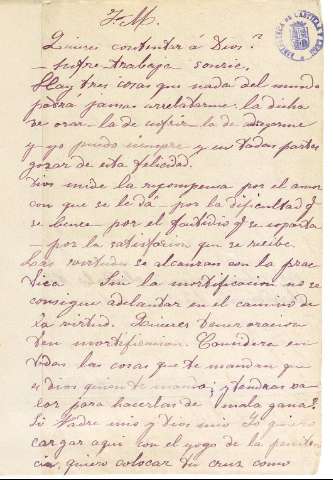 J. M.
Quieres contentar á Dios?
- sufre - trabaja - sonrie.
Hay tres cosas que nada del mundo
podra jamas arrebatarme. la dicha
de orar - la de sufrir - la de dejarme
y yo puedo siempre y en todas partes
gozar de esta felicidad.
Dios mide la recompensa por el amor
con que se le dá - por la dificultad q
se tiene - por el fastidio q se soporta
- por la satisfacion que se recibe.
Las virtudes se alcanzan con la prac
tica Sin la mortificacion no se
consigue adelantar en el camino de
la virtud. Quieres tener oracion
ten mortificacion. Considera en
todas las cosas que te mandan que
es Dios quien te manda; y tendras va
lor para hacerlas de mala gana?
Si Padre mio y Dios mio Yo quiero
cargar aqui con el yugo de la peniten
cia, quiero colocar tu cruz como
BIBLIOTECA DE CASTILLA Y LEON